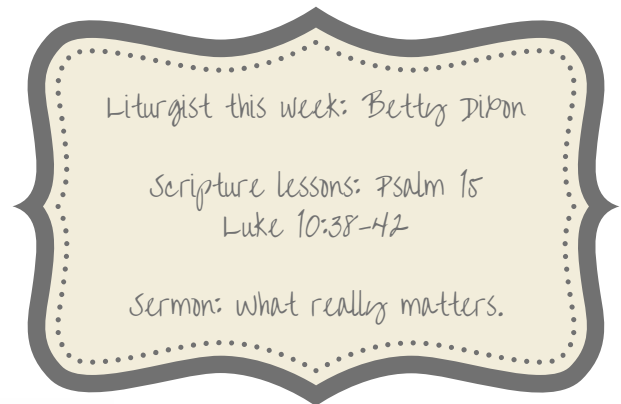 Liturgist this week: Betty Dixon
Scripture lessons: Psalm 15
Luke 10:38-42
Sermon: What really matters.